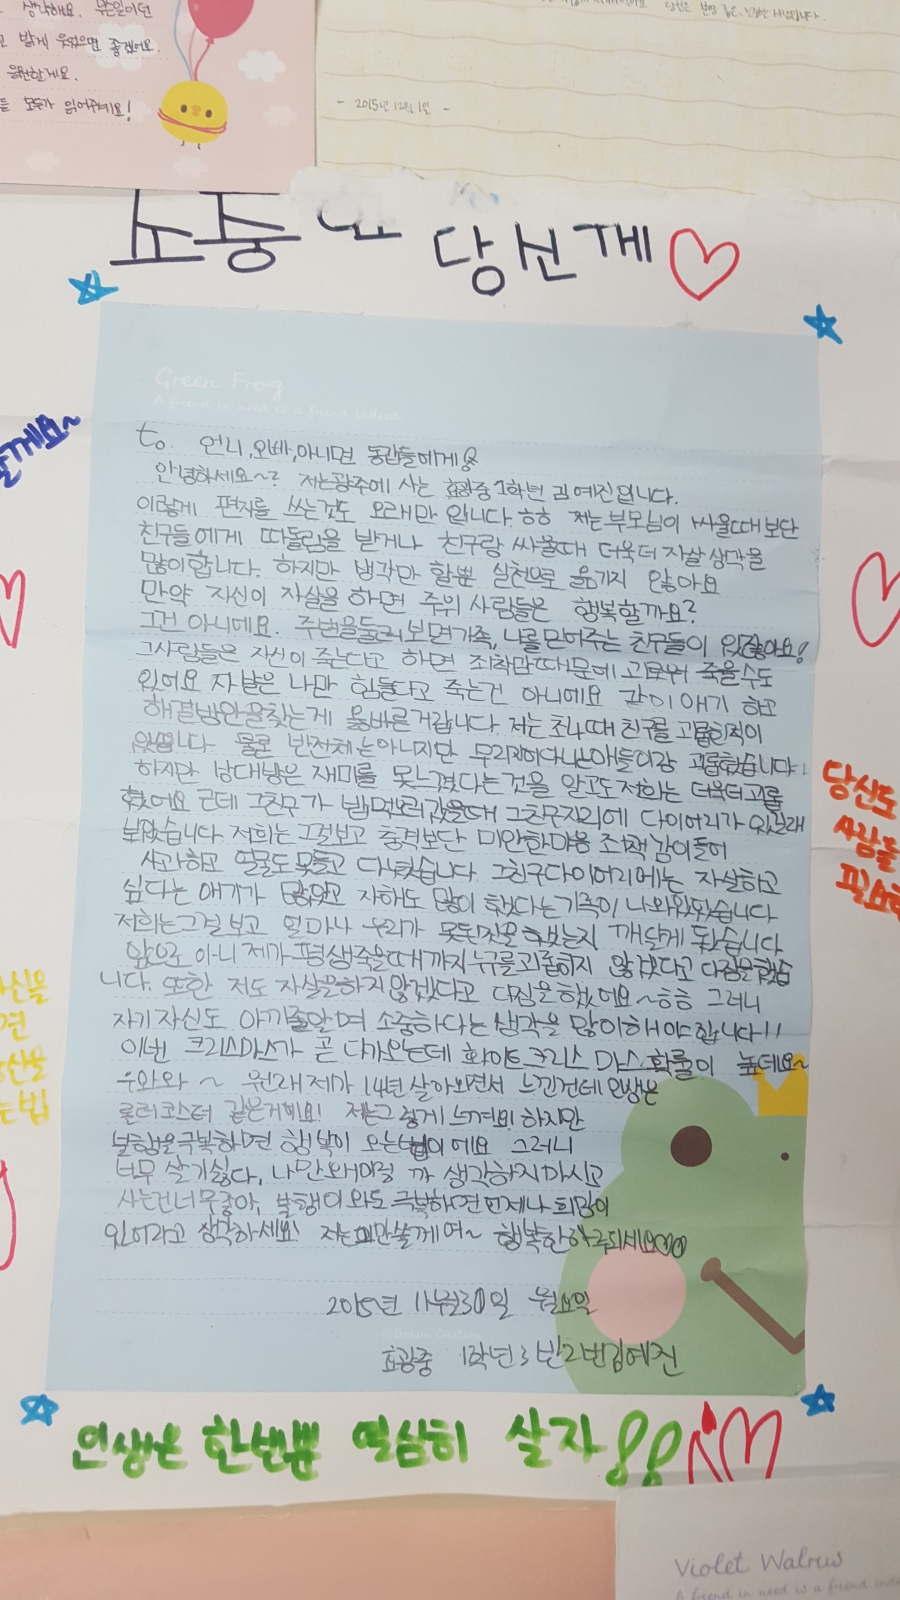 생각해요.
밝게 웃었으면 좋겠어요.
응원할게요.
모두가 읽어주세요!
- 2015년 12월 1일 -
소중한 당신께
Green Frog
A friend in need is a friend indeed
to. 언니, 오빠, 아니면 동갑들에게
안녕하세요~? 저는 광주에 사는 효광중 1학년 김예진입니다.
이렇게 편지를 쓰는 것도 오래만 입니다 ㅎㅎ 저는 부모님이 싸울때 보단
친구들에게 따돌림을 받거나 친구랑 싸울때 더욱더 자살 생각을
많이 합니다. 하지만 생각만 할뿐 실천으로 옮기지 않아요
만약 자신이 자살을 하면 주위 사람들은 행복할까요?
그건 아니에요. 주변을 둘러보면 가족, 나를 믿어주는 친구들이 있잖아요!
그사람들은 자신이 죽는다고 하면 죄책감때문에 괴로워 죽을수도
있어요 자살은 나만 힘들다고 죽는건 아니에요 같이 얘기 하고
해결방안을 찾는게 옳바른 거랍니다. 저는 초4때 친구를 괴롭힌적이
있습니다 물론 반전체는 아니지만 무리지어다니는 아이들이랑 괴롭혔습니다.
하지만 상대방은 재미를 못느꼈다는 것을 알고도 저희는 더욱더 괴롭
혔어요 근데 그친구가 밥먹으러 갔을때 그친구자리에 다이어리가 있길래
보았습니다 저희는 그걸보고 충격보단 미안한마음 죄책감이들어
사과하고 얼굴도 못들고 다녔습니다. 그친구 다이어리에는 자살하고
싶다는 얘기가 많았고 자해도 많이 했었다는 기록이 나와있었습니다
저희는 그걸 보고 얼마나 우리가 못된짓을 하였는지 깨닫게 됬습니다
앞으로 아니 제가 평생죽을때까지 누구를 괴롭히지 않겠다고 다짐을 했습
니다. 또한 저도 자살을 하지않겠다고 다짐을 했어요~ 흐흐 그러니
자기 자신도 아끼줄알며 소중하다는 생각을 많이 해야 합니다!!
이번 크리스마스가 곧 다가오는데 화이트 크리스마스 확률이 높데요~
우와와~ 원래 제가 14년 살아오면서 느낀건데 인생은
롤러코스터 같은거에요! 저는 그렇게 느껴요! 하지만
불행을 극복하면 행복이 오는법이에요 그러니
너무 살기싫다, 나만 왜이럴까 생각하지마시고
사는건 너무좋아, 불행이 와도 극복하면 언제나 희망이
있어라고 생각하세요! 저는 이만 쓸께여~ 행복한하루되세요
2015년 11월 30일 월요일
효광중 1학년 3반 2번 김예진
당신도
사람들
인생은 한번뿐 열심히 살자
Violet Walrus
A friend in need is a friend